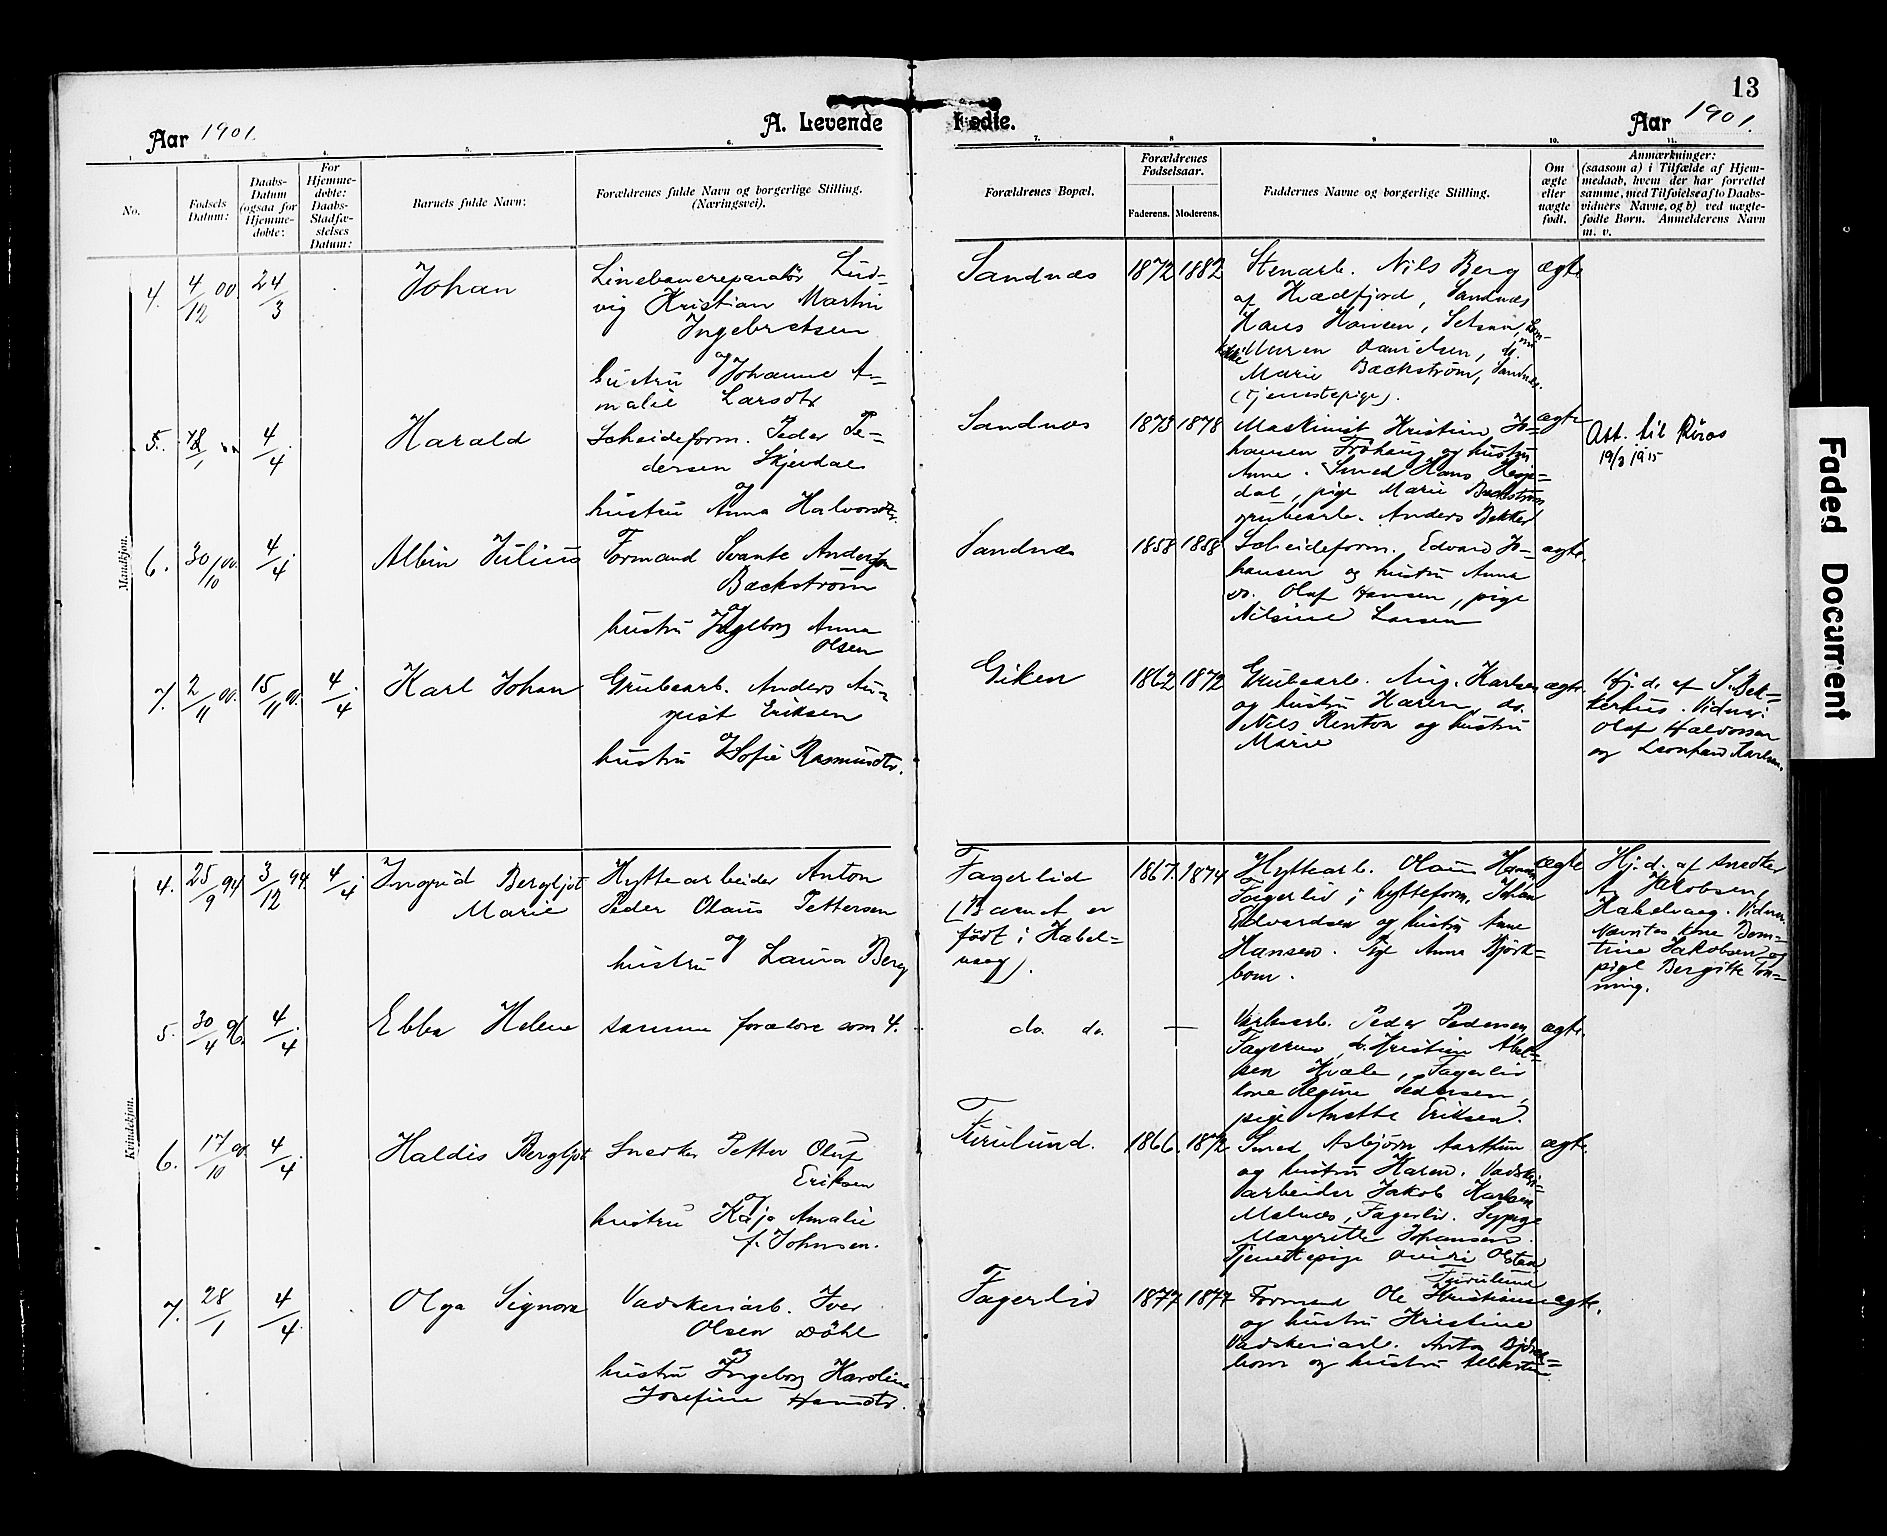 13
Aar 1901.
A. Levende Fødte.
Aar 1901.
1. 2. 3. 4. 5. 6. 7. 8 9 10. 11.
No.
Fødsels Datum:
Daabs-Datum (ogsaa for Hjemme-døbte:
For Hjemme-døbte: Daabs-Stadfæ-stelses Datum:
Barnets fulde Navn:
Forældrenes fulde Navn og borgerlige Stilling. (Næringsvei).
Forældrenes Bopæl.
Forældrenes Fødselsaar.
Faderens. Moderens.
Faddernes Navne og borgerlige Stilling.
Om ægte eller uægte født.
Anmærkninger:
(saasom a) i Tilfælde af Hjem-
medaab, hvem der har forrettet
samme, med Tilføielse af to Daabs-
vidners Navne, og b) ved uægte-
fødte Børn. Anmelderens Navn
m. v.
Mandkjøn.
4. 4/12 00. 24/3 Johan
Linebanereparatør Lud-
vig Kristian Martin
Ingebretsen
og
hustru Johanne A-
malie Larsdtr
Sandnæs 1872 1882
Stenarb. Nils Berg
af Kvædfjord, Sandnæs
Hans Hansen,
Maren Danielsen, ds.
Marie Backström, Sandnæs.
(tjenestepige).
ægte
5. 4/4. Harald
Scheideform. Peder Pe-
dersen Skjevdal
og
hustru Anna Halvorsdtr.
Sandnæs 1873 1878
Maskinist Kristian Jo-
hansen Frøhaug og hustru
Anne. Smed Hans
dal, pige Marie Backström,
grubearb. Anders Bekker
ægte
Att. til Røros
19/3 1915
6. 30/10 00. 4/4. Albin Julius
Formand Svante Andersen
Backström
og
hustru Ingeborg Anna
Olsen
Sandnæs 1858 1858
Scheideform. Edvard Jo-
hansen og hustru Anna
ds. Olaf Hansen, pige
Nilsine Larsen
ægte.
7. 2/11 00. 15/11 00. 4/4. Karl Johan
Grubearb. Anders Au-
gust Eriksen
og
hustru Sofie Rasmusdtr.
Giken 1862 1872
Grubearb. Aug. Karlsen
og hustru Karen, ds.
Nils Renton og hustru
Marie
ægte.
Hj. d. af S. Bek-
kerhus. Vidner:
Olaf Halvorsen
og Leonhard Karlsen.
Kvindekjøn.
4. 25/9 94. 3/12 94. 4/4. Ingrid Bergljot
Marie
Hyttearbeider Anton
Peder Olaus Pettersen
og
hustru Laura Berg
Fagerlid
(Barnet er
født i Kabel-
vaag).
1867. 1874
Hyttearb. Olaus Hansen
Fagerliv, hytteform. Johan
Edvardsen og hustru Anne
Hansen. Pige Anna Björk-
bom.
ægte
Hj. d. af snedker
A. Jakobsen,
Kabelvaag. Vidner.
kone
tine Jakobsen og
pige Bergitte Tøn-
ning.
5. 30/4 96. 4/4. Ebba Helene
samme forældre som 4.
do. do. —
Verksarb. Peder Pedersen
Kristian Abel-
sen Kvæle, Fagerliv
kone Regine Pedersen,
pige Anette Eriksen.
ægte.
6. 17/10 00. 4/4. Haldis Bergljot
Snedker Petter Oluf
Eriksen
og
hustru Kaja Amalie
f. Johnsen.
Furulund. 1866. 1872
Smed Asbjørn Aarthun
og hustru Karen. Vaskeri-
arbeider Jakob Karlsen
Malnæs, Fagerliv. Sypige
Margrethe Johansen.
Tjenestepige Olsen
Furulund
ægte.
7. 28/1 4/4. Olga Signora
Vadskeriarb. Iver
Olsen Döhl
og
hustru Ingeborg Karoline
Josefine Hansdtr.
Fagerlid 1877 1877
Formand Ole Kristiansen
og hustru Kristine
Vadskeriarb. Anton Björk-
bom og hustru Albertine.
ægte.
Faded Document